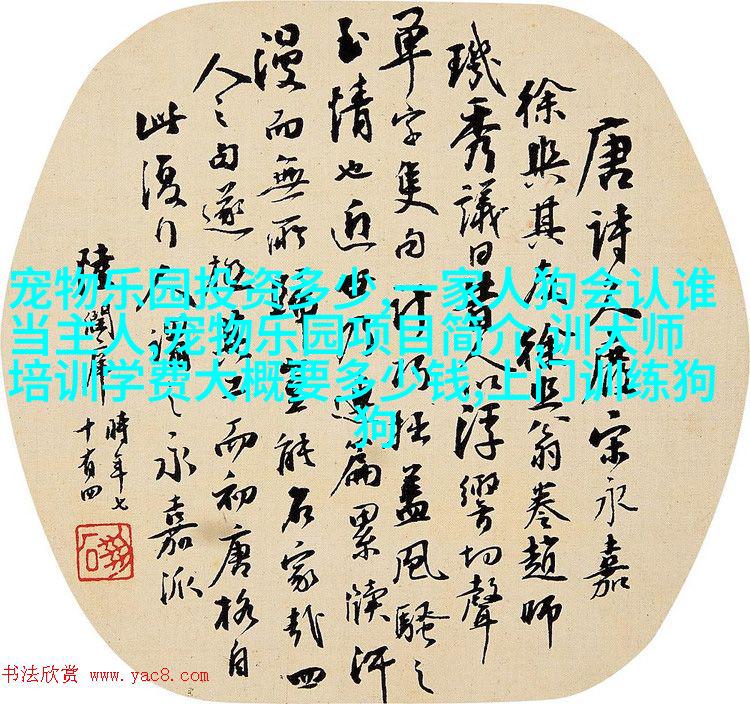 唐诗人废宋永嘉
徐照其友徐照翁卷赵师
秀议曰昔人以浮响切声
单字只句计巧拙盖风骚之
至情也近世乃连篇累牍汗
漫而无所
能名家哉四
人之
而初唐格自
此复行矣
永嘉派
陆润庠
时年七
十有四
宠物乐园投资多少,一家人狗会认谁
当主人,宠物乐园项目简介,训犬师
培训学费大概要多少钱,上门训练狗
狗
书法欣赏 www.yac8.com